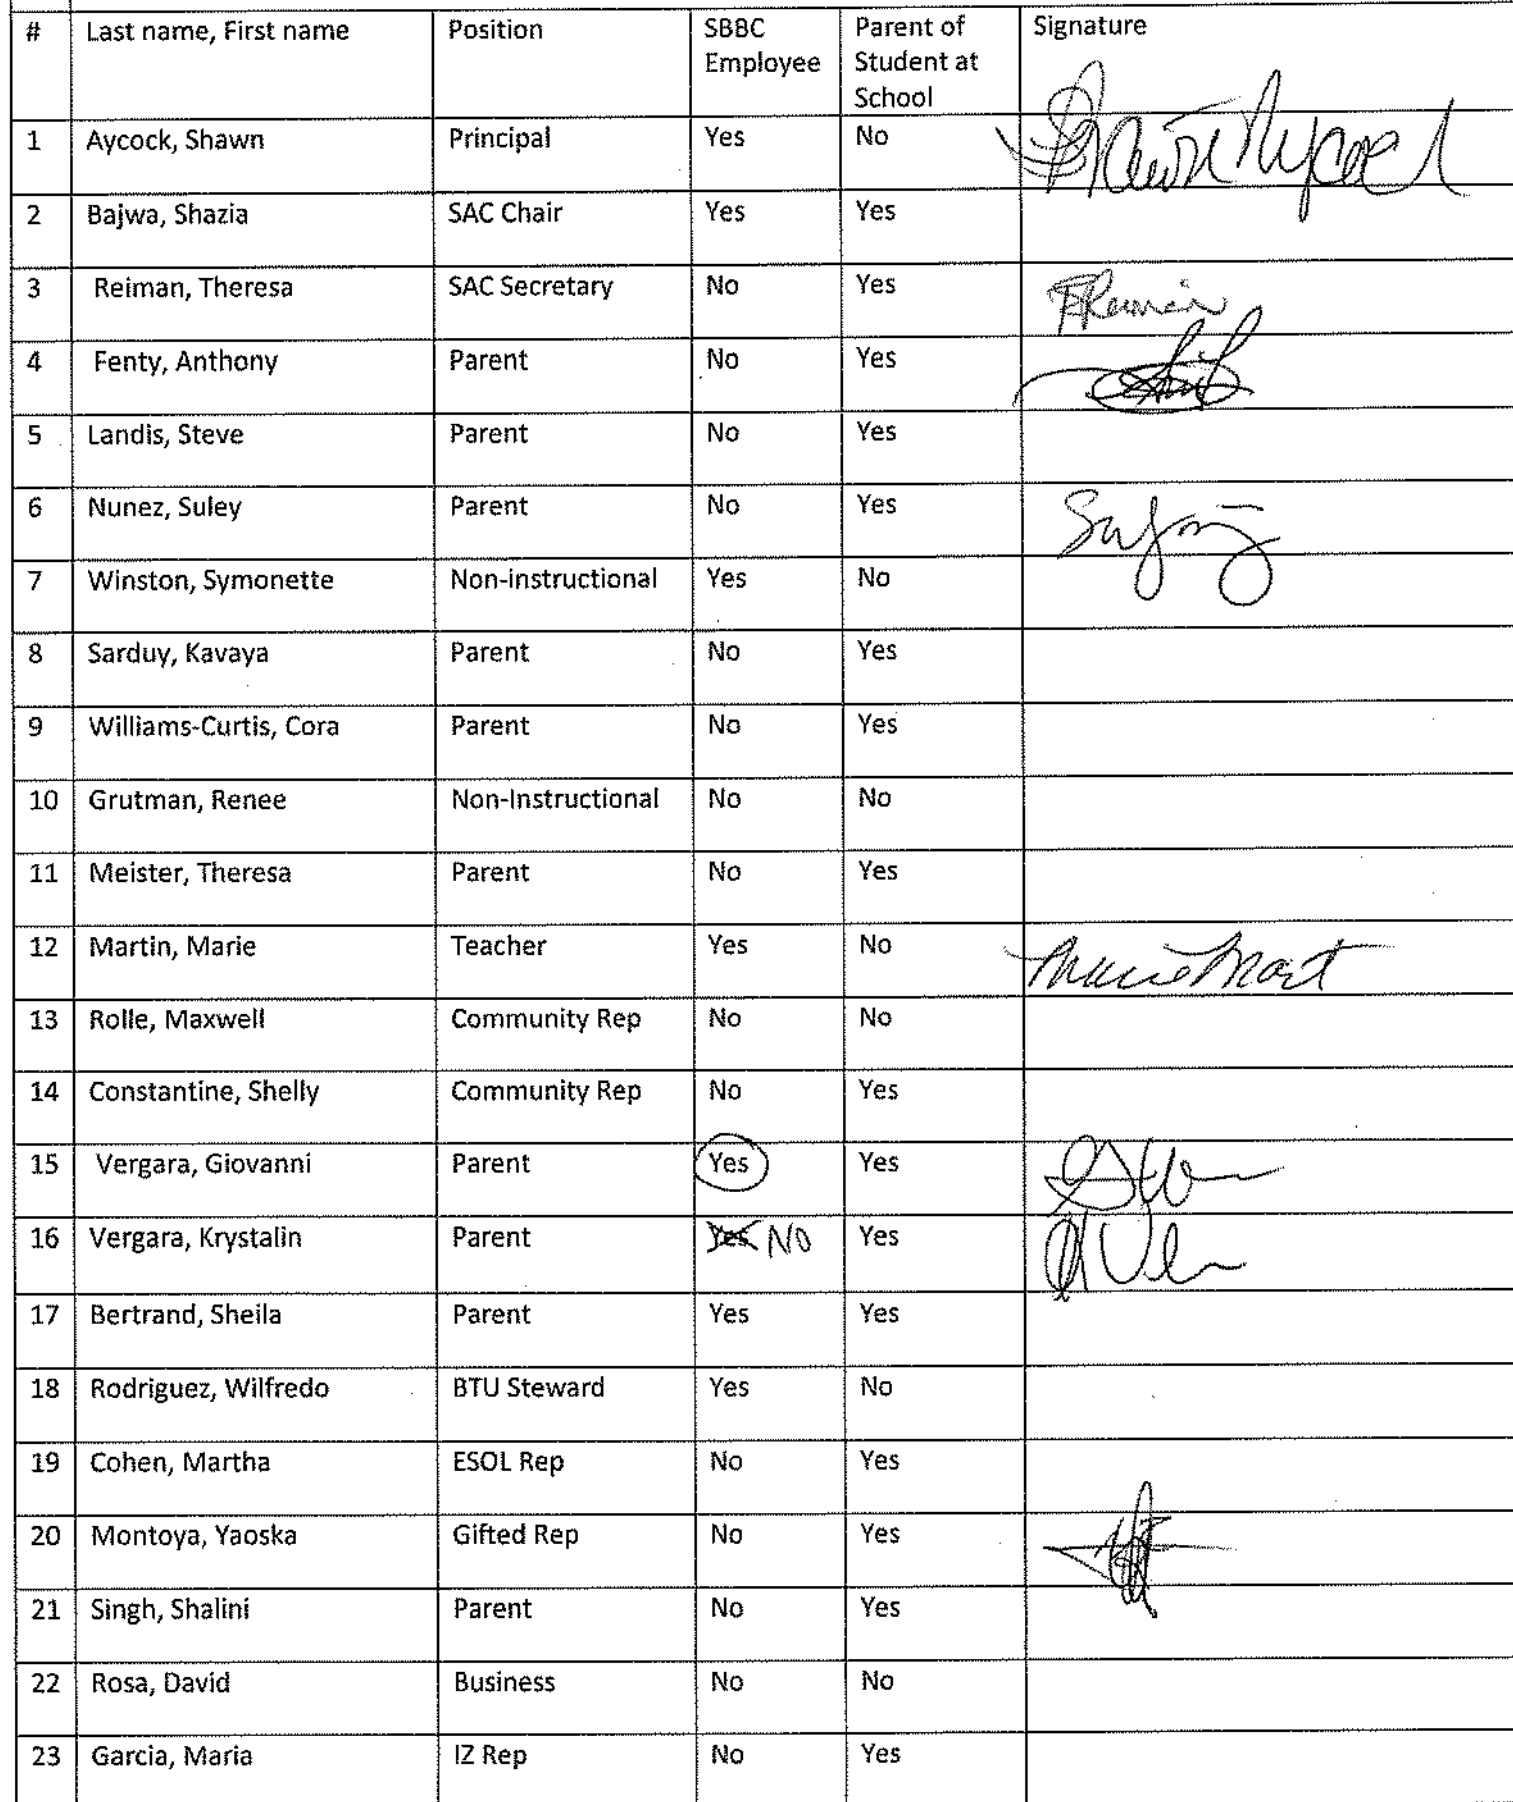 # Last name, First name Position SBBC Employee Parent of Student at School Signature
1 Aycock, Shawn Principal Yes No Shawn Aycock
2 Bajwa, Shazia SAC Chair Yes Yes
3 Reiman, Theresa SAC Secretary No Yes TReiman
4 Fenty, Anthony Parent No Yes
5 Landis, Steve Parent No Yes
6 Nunez, Suley Parent No Yes
7 Winston, Symonette Non-instructional Yes No
8 Sarduy, Kavaya Parent No Yes
9 Williams-Curtis, Cora Parent No Yes
10 Grutman, Renee Non-Instructional No No
11 Meister, Theresa Parent No Yes
12 Martin, Marie Teacher Yes No Marie Mart
13 Rolle, Maxwell Community Rep No No
14 Constantine, Shelly Community Rep No Yes
15 Vergara, Giovanni Parent Yes Yes
16 Vergara, Krystalin Parent Yes NO Yes
17 Bertrand, Sheila Parent Yes Yes
18 Rodriguez, Wilfredo BTU Steward Yes No
19 Cohen, Martha ESOL Rep No Yes
20 Montoya, Yaoska Gifted Rep No Yes
21 Singh, Shalini Parent No Yes
22 Rosa, David Business No No
23 Garcia, Maria IZ Rep No Yes